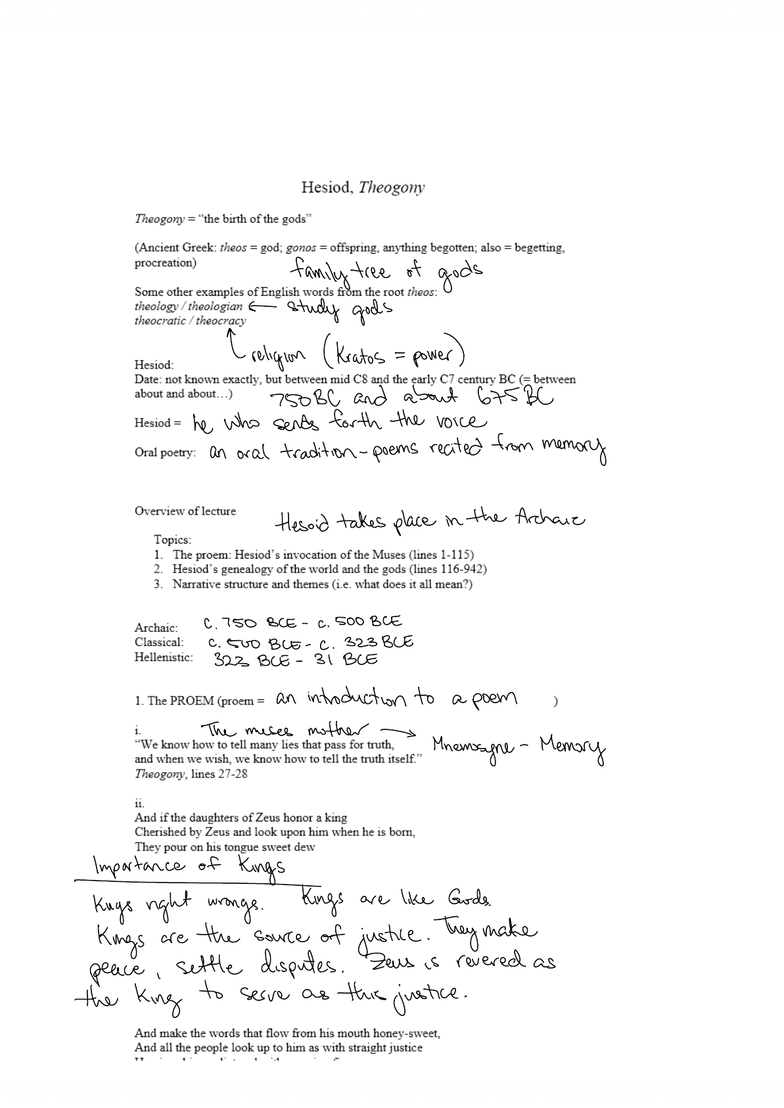 Hesiod, Theogony
Theogony = “the birth of the gods”
(Ancient Greek: theos = god; gonos = offspring, anything begotten; also = begetting,
procreation)
family tree of gods
Some other examples of English words from the root theos:
theology / theologian ← study gods
theocratic / theocracy
religion (Kratos = power)
Hesiod:
Date: not known exactly, but between mid C8 and the early C7 century BC (= between
about and about…) 750 BC and about 675 BC
Hesiod = he who sends forth the voice
Oral poetry: an oral tradition - poems recited from memory
Overview of lecture
Hesoid takes place in the Archaic
Topics:
1. The proem: Hesiod’s invocation of the Muses (lines 1-115)
2. Hesiod’s genealogy of the world and the gods (lines 116-942)
3. Narrative structure and themes (i.e. what does it all mean?)
Archaic: c. 750 BCE - c. 500 BCE
Classical: c. 500 BCE - c. 323 BCE
Hellenistic: 323 BCE - 31 BCE
1. The PROEM (proem = an introduction to a poem )
i. The muses mother →
“We know how to tell many lies that pass for truth, Mnemosyne - Memory
and when we wish, we know how to tell the truth itself.”
Theogony, lines 27-28
ii.
And if the daughters of Zeus honor a king
Cherished by Zeus and look upon him when he is born,
They pour on his tongue sweet dew
Importance of Kings
Kings right wrongs. Kings are like Gods.
Kings are the source of justice. They make
peace, settle disputes. Zeus is revered as
the King to serve as this justice.
And make the words that flow from his mouth honey-sweet,
And all the people look up to him as with straight justice